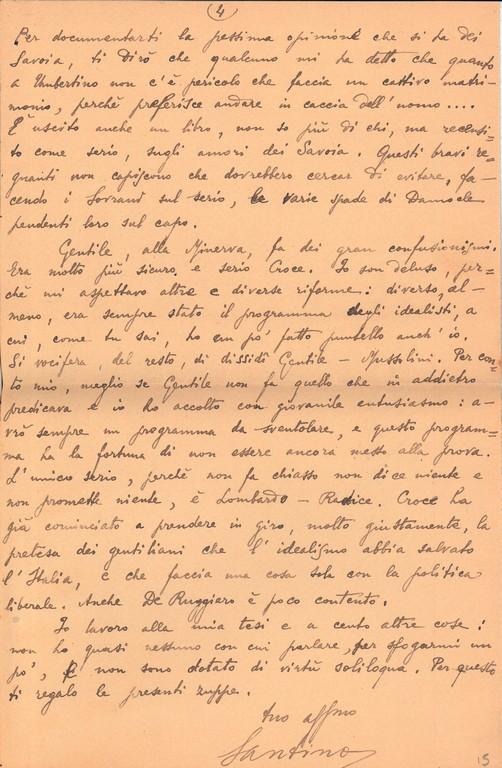 4
Per documentarti la pessima opinione che si ha dei
Savoia, ti dirò che qualcuno mi ha detto che quanto
a Umbertino non c'è pericolo che faccia un cattivo matri-
monio, perchè preferisce andare in caccia dell'uomo....
È uscito anche un libro, non so più di chi, ma recensi-
to come serio, sugli amori dei Savoia. Questi bravi re-
gnanti non capiscono che dovrebbero cercar di evitare, fa-
cendo i Sovrani sul serio, le varie spade di Damocle
pendenti loro sul capo.
Gentile, alla Minerva, fa dei gran confusionismi.
Era molto più sicuro e serio Croce. Io son deluso, per-
chè mi aspettavo altre e diverse riforme: diverso, al-
meno, era sempre stato il programma degli idealisti, a
cui, come tu sai, ho un pò fatto puntello anch'io.
Si vocifera, del resto, di dissidi Gentile - Mussolini. Per con-
to mio, meglio se Gentile non fa quello che in addietro
predicava e io ho accolto con giovanile entusiasmo: a-
vrò sempre un programma da sventolare, e questo program-
ma ha la fortuna di non essere ancora messo alla prova.
L'unico serio, perchè non fa chiasso non dice niente e
non promette niente, è Lombardo - Radice. Croce ha
già cominciato a prendere in giro, molto giustamente, la
pretesa dei gentiliani che l'idealismo abbia salvato
l'Italia, e che faccia una cosa sola con la politica
liberale. Anche De Ruggiero è poco contento.
Io lavoro alla mia tesi e a cento altre cose:
non ho quasi nessuno con cui parlare, per sfogarmi un
pò, e non sono dotato di virtù soliloqua. Per questo
ti regalo le presenti zuppe.
tuo affmo
Santino
15